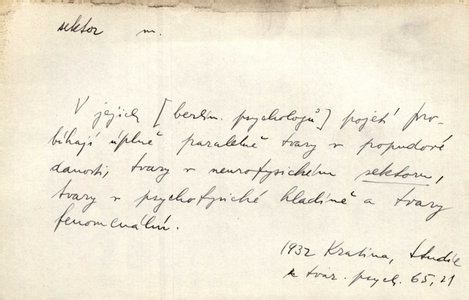 sektor m.
V jejich [berlín. psychologů] pojetí pro-
bíhají úplně paralelně tvary v popudové
danosti, tvary v neurofysickém sektoru,
tvary v psychofysické hladině a tvary
fenomenální.
1932 Kratina, Studie
k tvar. psych. 65, 21